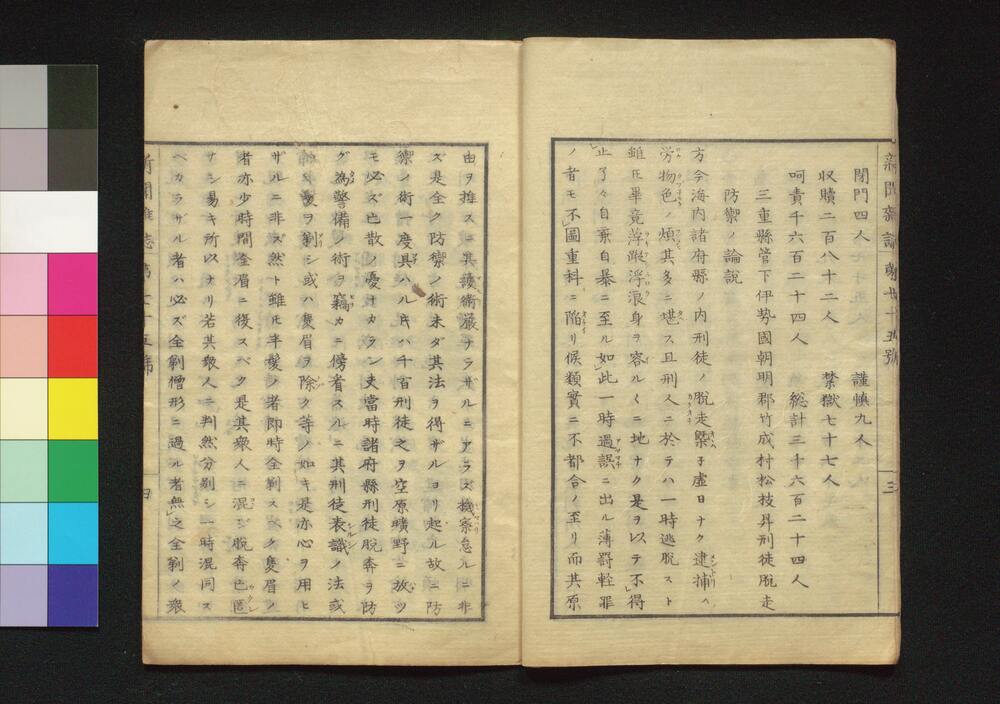 新聞雑誌 第廿十五號
三
閉門四人
謹慎九人
収贖二百八十二人 禁獄七十七人
呵責千六百二十四人 総計三千六百二十四人
三重縣管下伊勢國朝明郡竹成村松枝昇刑徒脱走
防禦ノ論説
方今海内諸府縣ノ内刑徒ノ脱走殆子虚日ナク逮捕ノ
労物色ノ煩其多ニ堪ス且刑人ニ於テハ一時逃脱スト
雖𪜈畢竟萍蹤浮浪身ヲ容ルヽニ地ナク是ヲ以テ不得
止了々自棄自暴ニ至ル如此一時過誤ニ出ル薄罰軽罪
ノ者モ不圖重科ニ陥リ候類實ニ不都合ノ至リ而其原
由ヲ推スニ其護衛嚴ナラザルニアラズ機察怠ルニ非
ズ是全ク防禦ノ術未ダ其法ヲ得ザルヨリ起ル故ニ防
禦ノ術一度具ハル𪜈ハ千百刑徒之ヲ空原曠野ニ放ツ
モ必ズ亡散ノ憂ナカラン夫當時諸府縣刑徒脱奔ヲ防
グ為警備ノ術ヲ竊カニ傍看スルニ其刑徒表識ノ法或
ハ半髪ヲ剃シ或ハ隻眉ヲ除ク等ノ如キ是亦心ヲ用ヒ
ザルニ非ズ然ト雖𪜈半髪ノ者即時全剃スベク隻眉ノ
者亦少時間全眉ニ復スベク是其衆人ニ混ジ脱奔亡匿
サシ易キ所以ナリ若其衆人ニ判然分別シ一時混同ス
ベカラザル者ハ必ズ全剃僧形ニ過ル者無之全剃ノ衆
新聞雑誌 第廿十五號
四